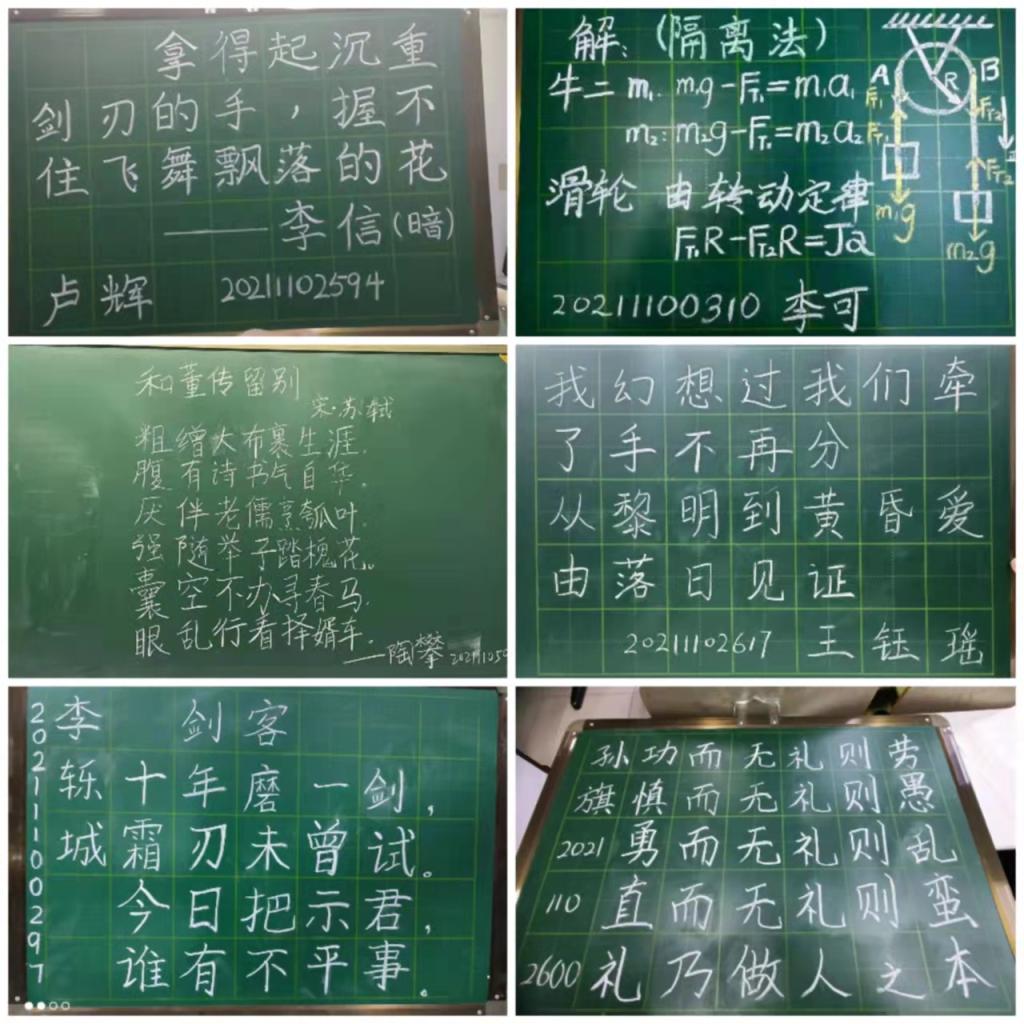 拿得起沉重
剑刃的手，握不
住飞舞飘落的花
——李信(暗)
卢辉 20211102594
解：(隔离法)
牛二 m₁: m₁g-F_T₁=m₁a₁
m₂: m₂g-F_T₁=m₂a₂
滑轮 由转动定律
F_T₁R-F_T₂R=Jα
A
R
B
F_T₁
F_T₁
F_T₂
F_T₂
m₁g
m₂g
202111100310 李可
和董传留别
宋·苏轼
粗缯大布裹生涯.
腹有诗书气自华.
厌伴老儒烹瓠叶.
强随举子踏槐花。
囊空不办寻春马.
眼乱行看择婿车.
——陶攀
我幻想过我们牵
了手不再分
从黎明到黄昏爱
由落日见证
20211102617 王钰瑶
李轹城
20211100297
剑客
十年磨一剑，
霜刃未曾试。
今日把示君，
谁有不平事。
孙功而无礼则劳
旗慎而无礼则愚
2021勇而无礼则乱
110直而无礼则蛮
2600礼乃做人之本